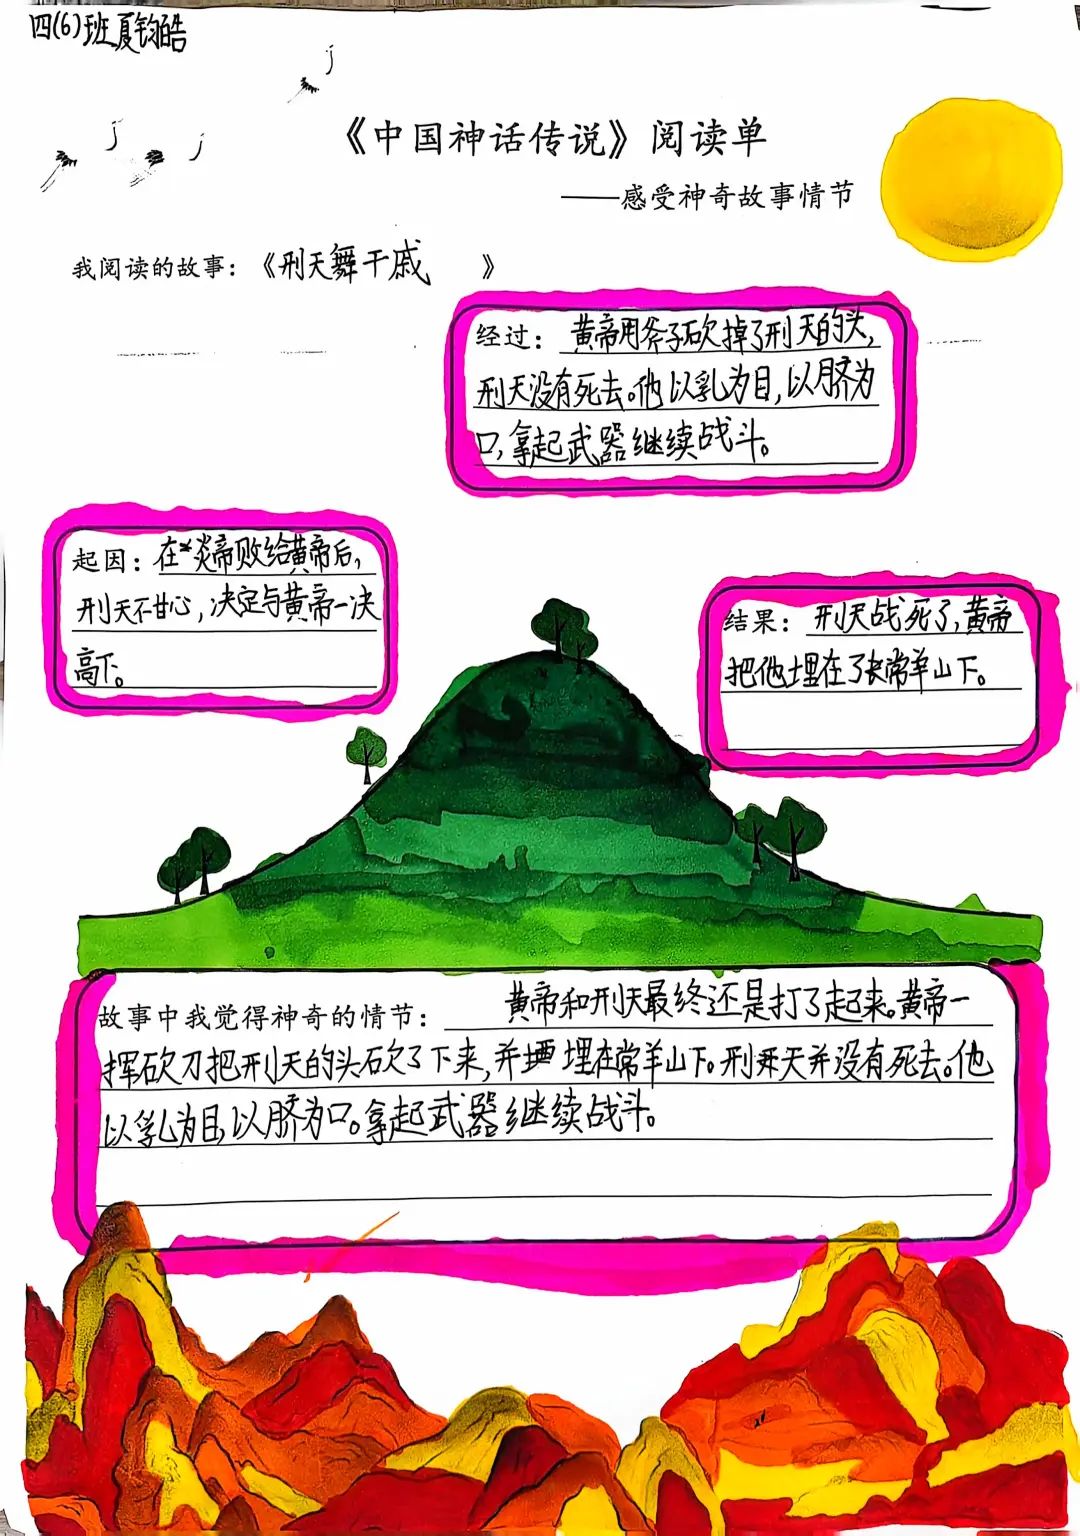 四(6)班夏钧皓
《中国神话传说》阅读单
——感受神奇故事情节
我阅读的故事：《刑天舞干戚》
经过：黄帝用斧子砍掉了刑天的头,
刑天没有死去。他以乳为目,以脐为
口,拿起武器继续战斗。
起因：在炎帝败给黄帝后,
刑天不甘心,决定与黄帝一决
高下。
结果：刑天战死了,黄帝
把他埋在了常羊山下。
故事中我觉得神奇的情节：黄帝和刑天最终还是打了起来。黄帝一
挥砍刀把刑天的头砍了下来,并埋在常羊山下。刑天并没有死去。他
以乳为目,以脐为口。拿起武器继续战斗。